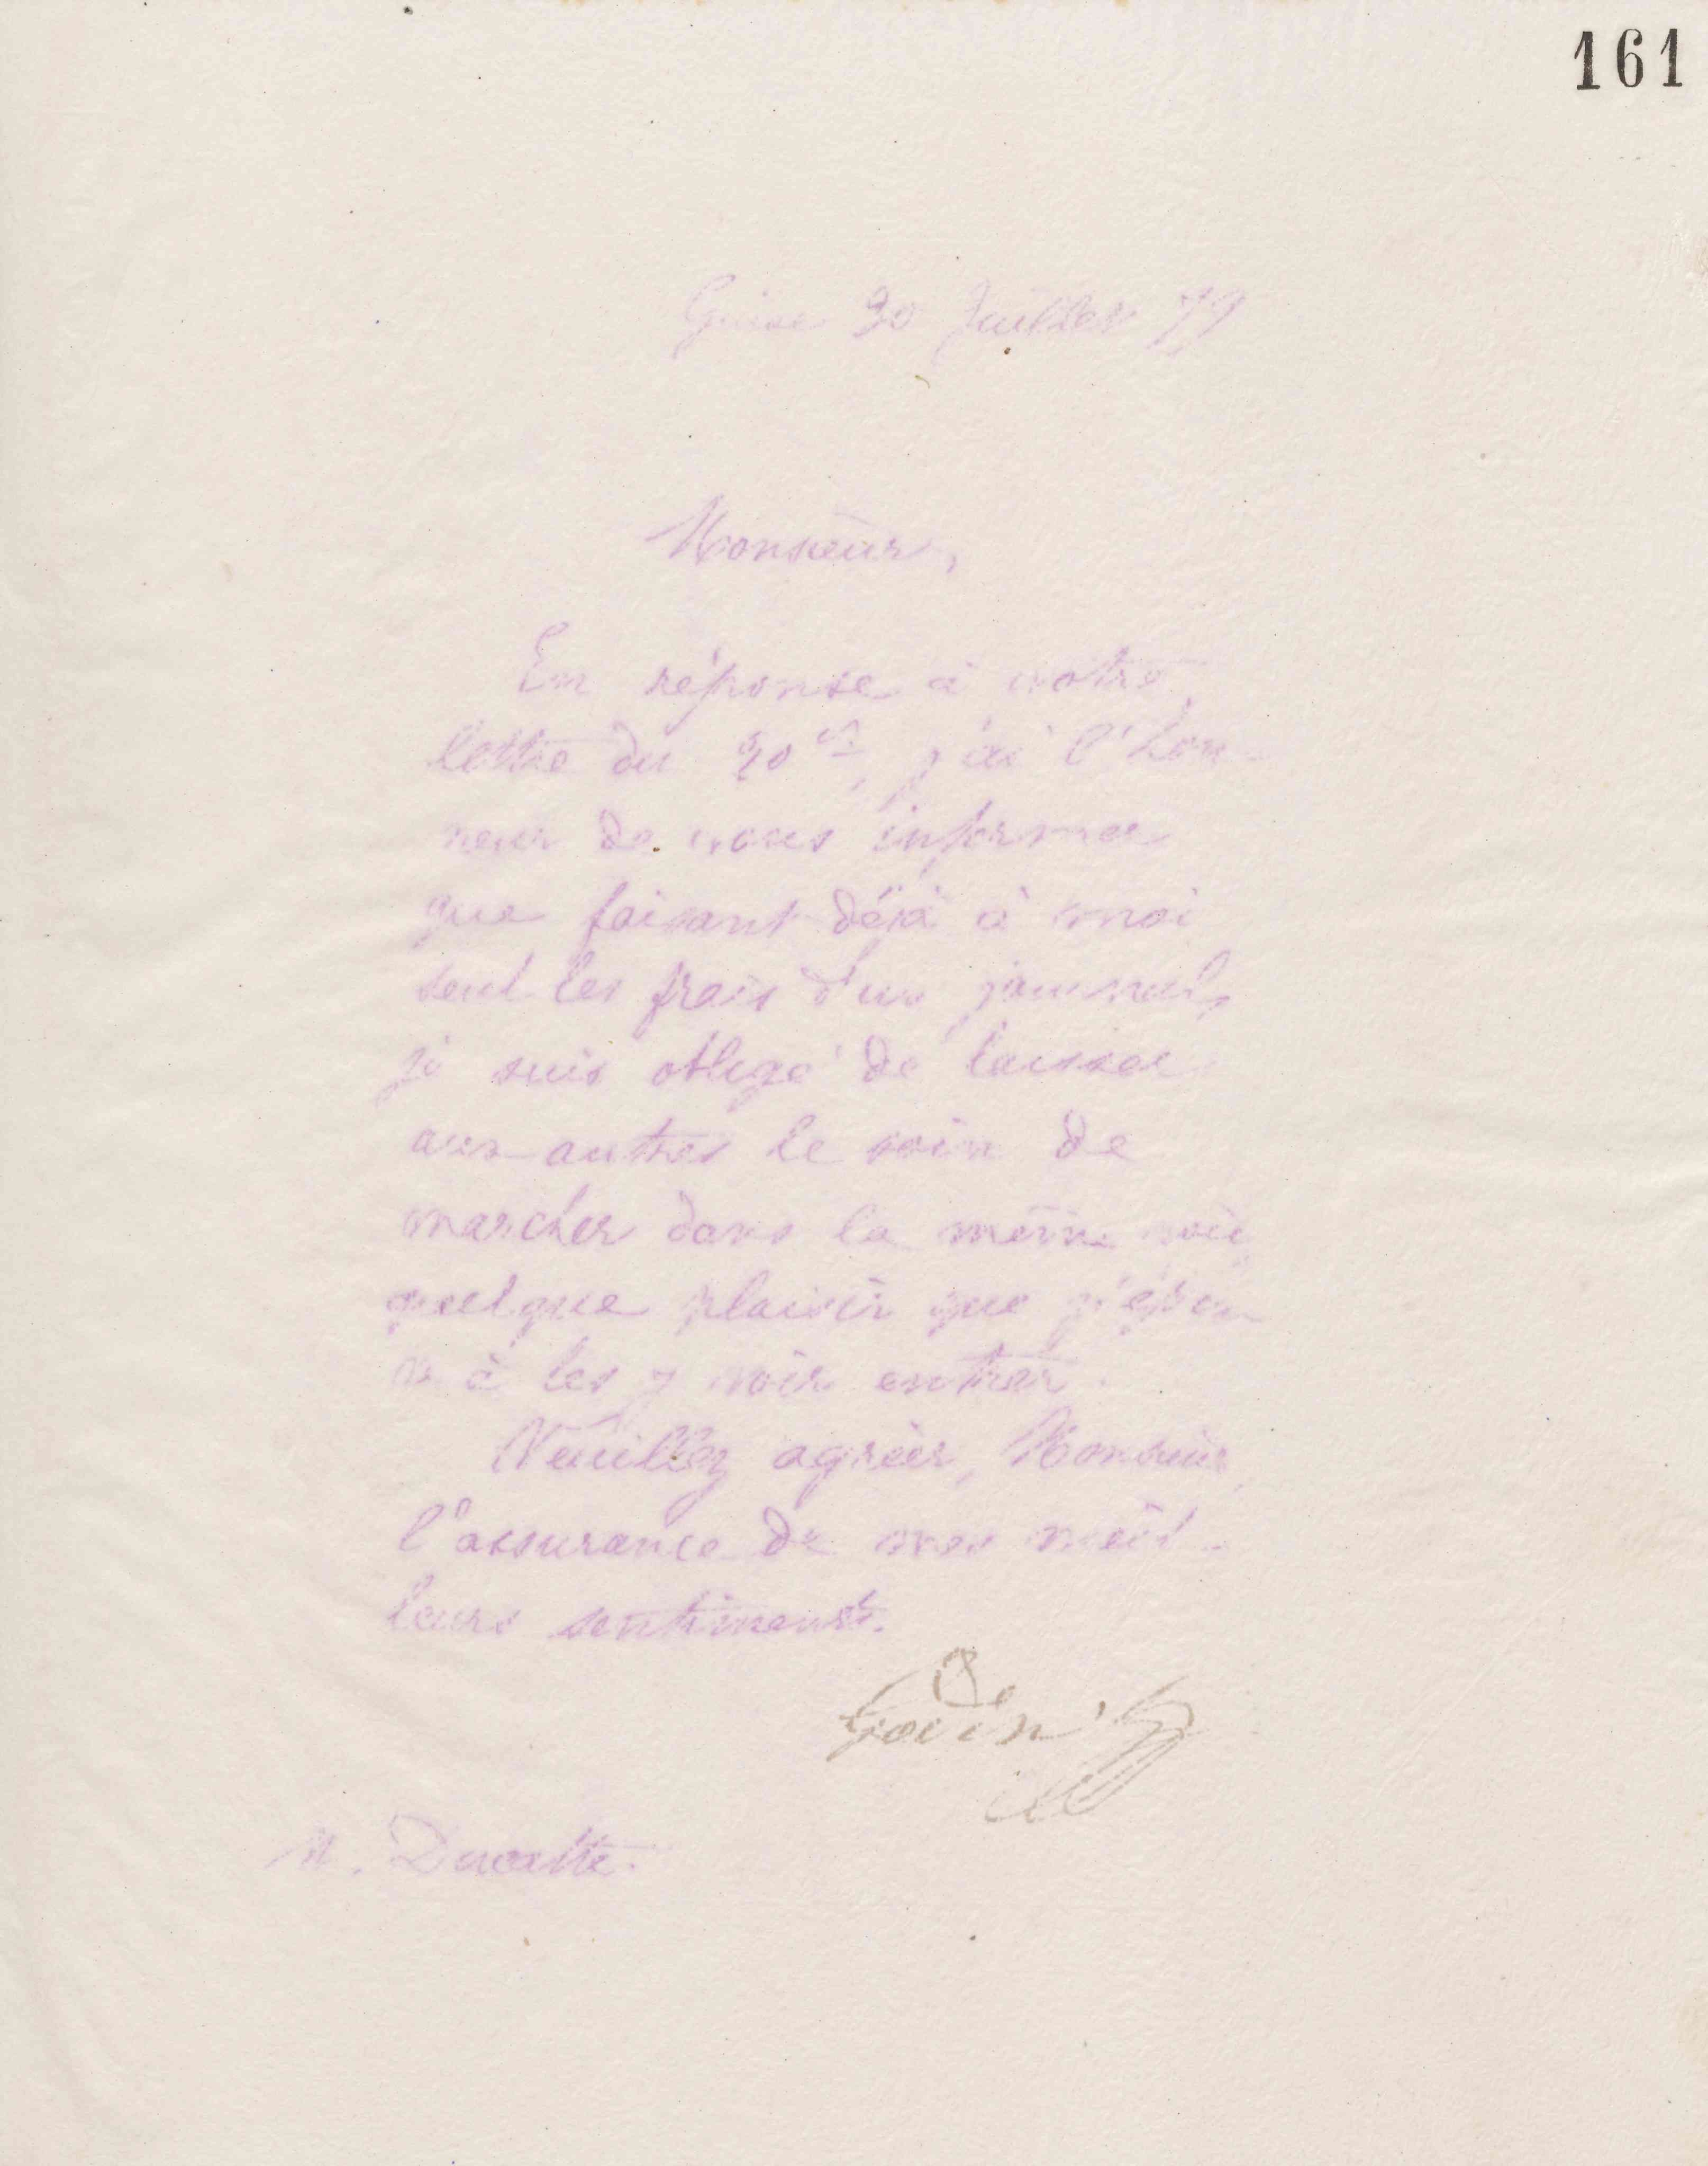 161
Guise 30 Juillet 79
Monsieur,
En réponse à votre
lettre du 20 ct, j'ai l'hon-
neur de vous informer
que faisant déjà à moi
seul les frais d'un journal,
je suis obligé de laisser
aux autres le soin de
marcher dans la même voie
quelque plaisir que j'éprou-
ve à les y voir entrer.
Veuillez agréer, Monsieur,
l'assurance de mes meil-
leurs sentiments.
Godin
M.